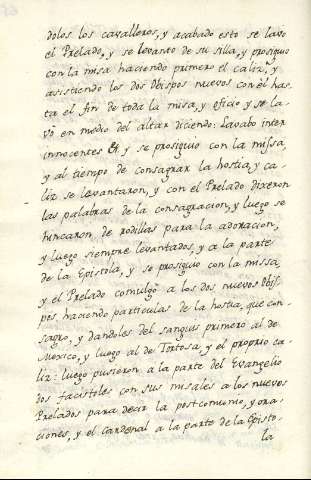 dolos los cavalleros, y acabado esto se lavo
el Prelado, y se levanto de su silla, y prosiguio
con la misa haciendo primero el caliz, y
asistiendo los dos Obispos nuevos con el has-
ta el fin de toda la misa, y oficio y se la-
vó en medio del altar diciendo: Lavabo inter
innocentes &, y se prosiguio con la missa
y al tiempo de consagrar la hostia, y ca-
liz se levantaron, y con el Prelado dixeron
las palabras de la consagracion, y luego se
hincaron de rodillas para la adoracion,
y luego siempre levantados, y a la parte
de la Epistola, y se prosiguio con la missa,
y el Prelado comulgó a los dos nuevos Obis-
pos, haciendo particulas de la hostia, que con-
sagro, y dandoles del sanguis primero al de
Mexico, y luego al de Tortosa, y el proprio ca-
liz: luego pusieron a la parte del Evangelio
dos facistoles con sus misales a los nuevos
Prelados para decir la postcomunio, y ora-
ciones, y el Cardenal a la parte de la Episto-
la